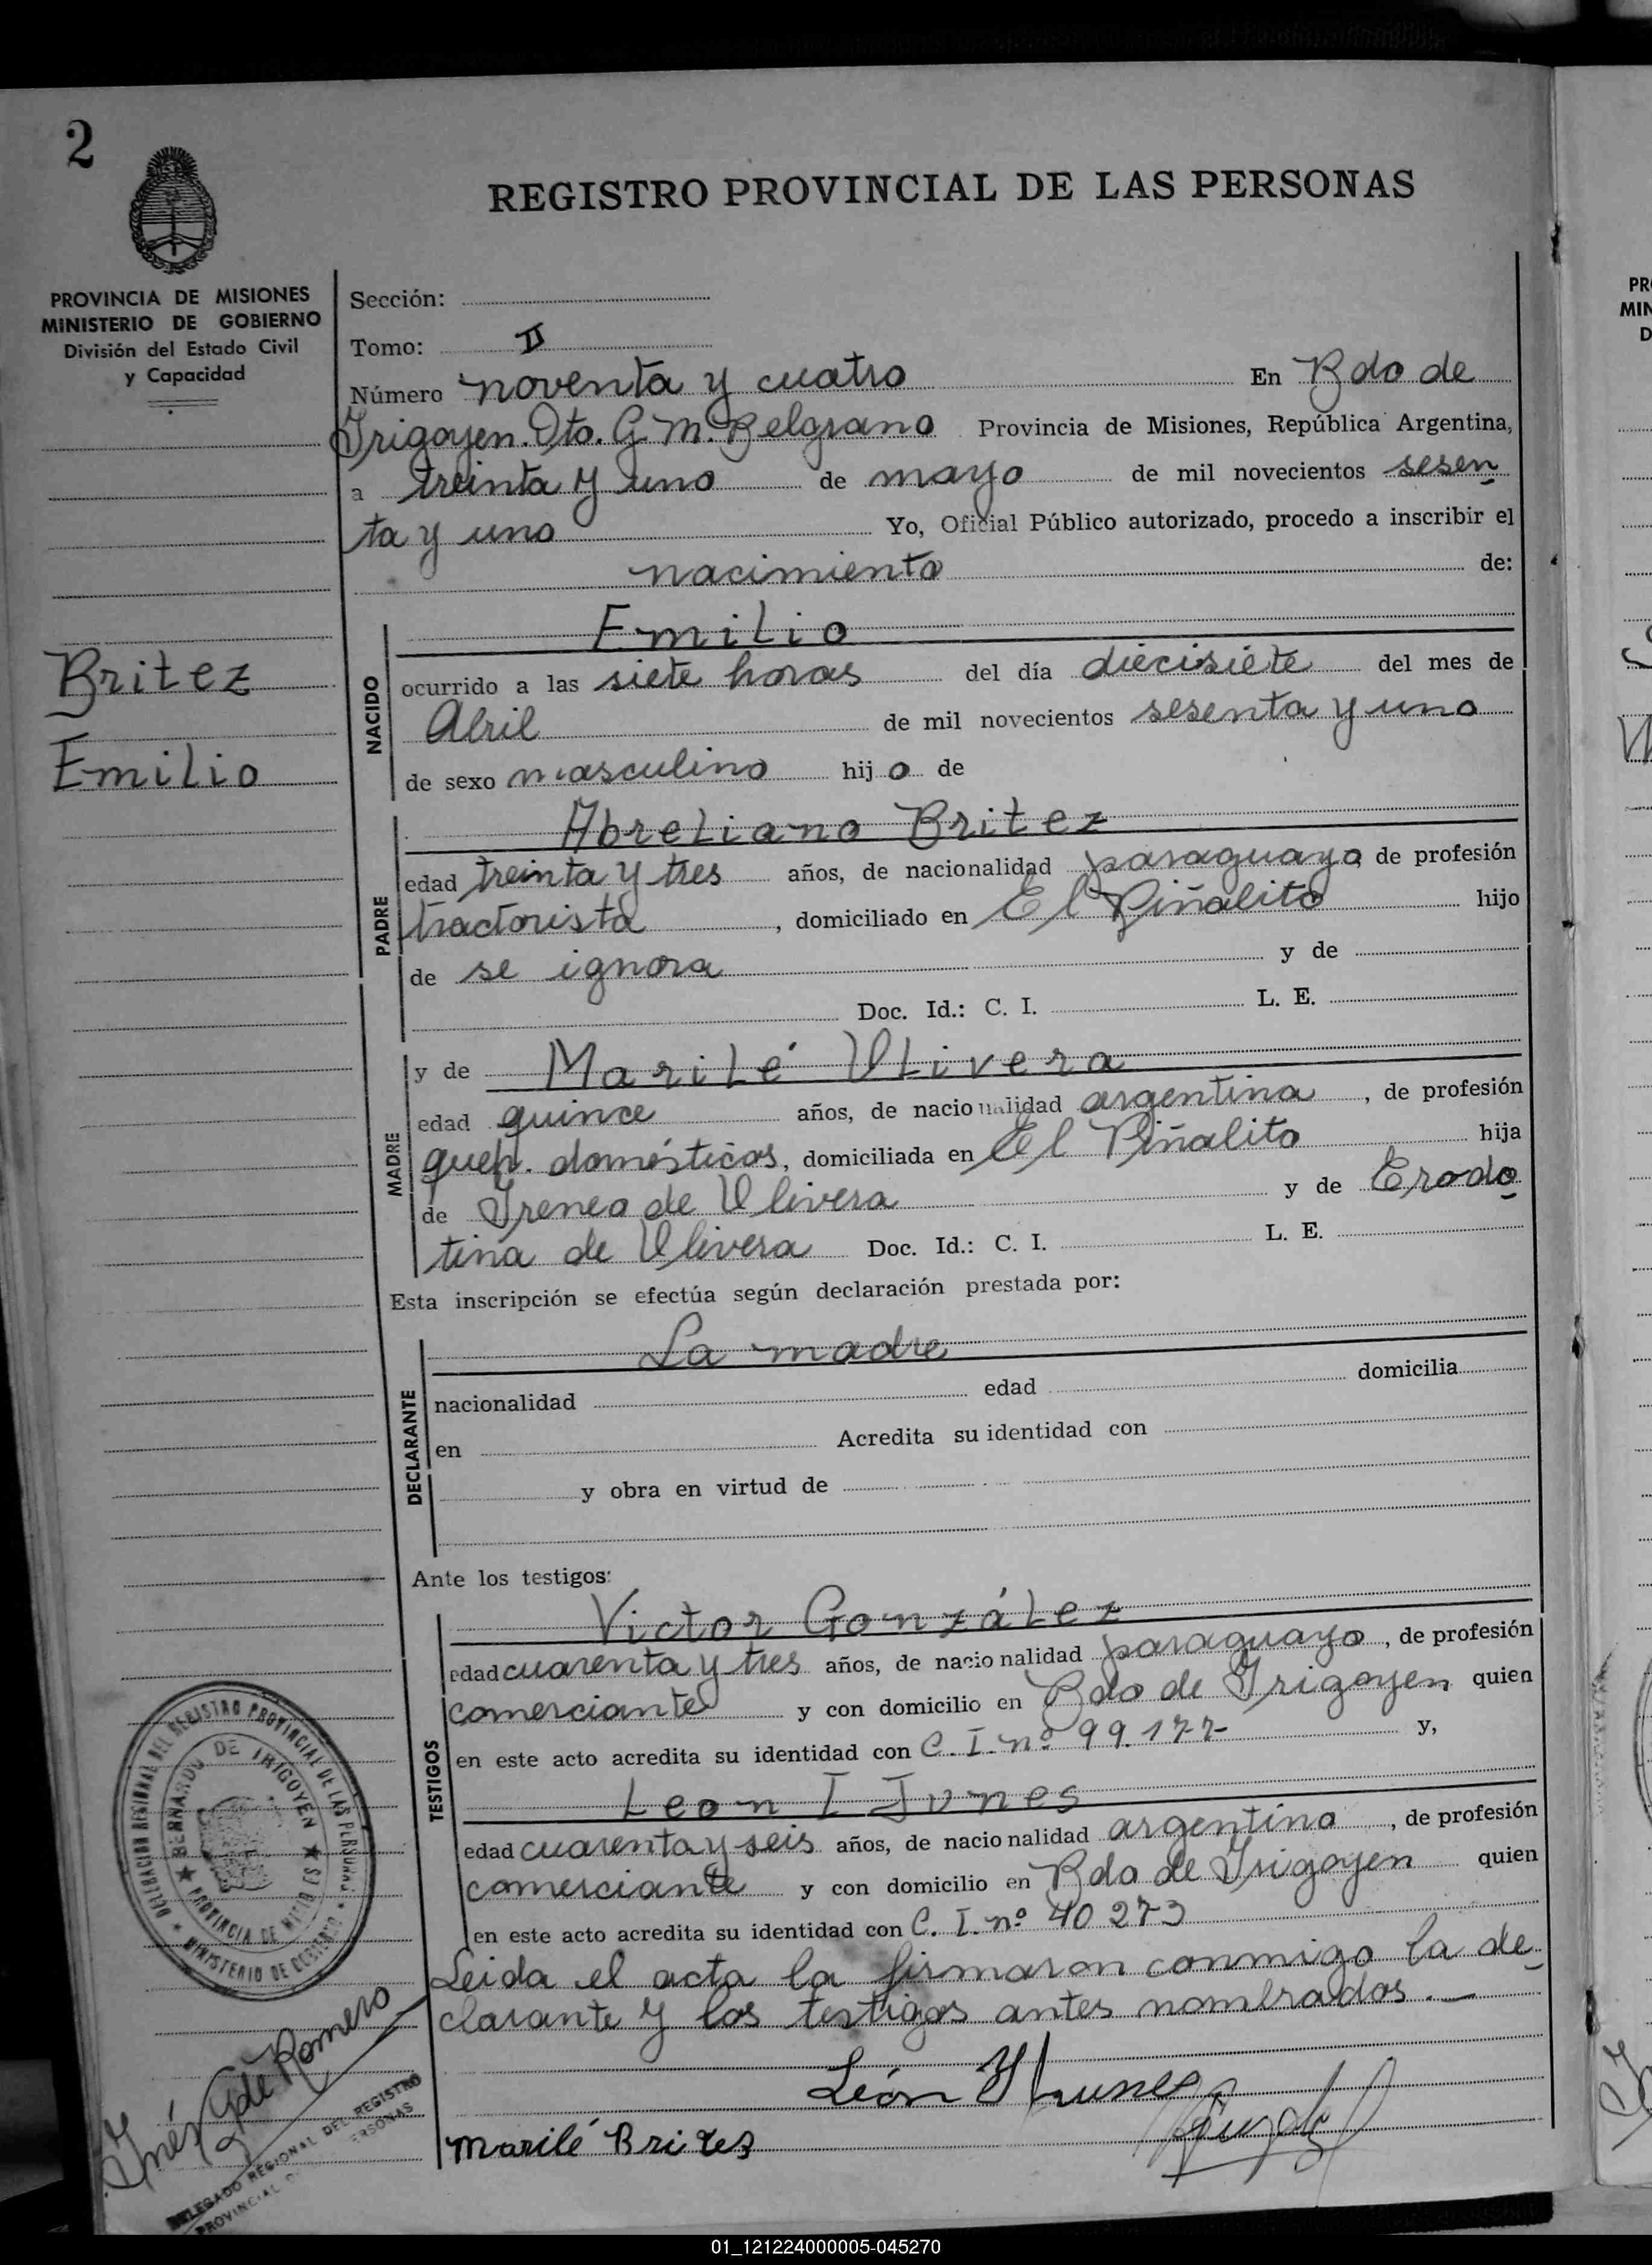 2
REGISTRO PROVINCIAL DE LAS PERSONAS
PROVINCIA DE MISIONES
MINISTERIO DE GOBIERNO
División del Estado Civil
y Capacidad
Britez
Emilio
Sección:
Tomo: II
Número noventa y cuatro En Bdo de
Irigoyen. Dto. G. M. Belgrano Provincia de Misiones, República Argentina,
a treinta y uno de mayo de mil novecientos sesen
ta y uno Yo, Oficial Público autorizado, procedo a inscribir el
nacimiento de:
NACIDO
Emilio
ocurrido a las siete horas del día diecisiete del mes de
Abril de mil novecientos sesenta y uno
de sexo masculino hijo de
PADRE
Abreliano Britez
edad treinta y tres años, de nacionalidad paraguaya de profesión
tractorista, domiciliado en El Piñalito hijo
de se ignora y de
Doc. Id.: C. I. L. E.
MADRE
y de Marilé Ulivera
edad quince años, de nacionalidad argentina, de profesión
queh. domésticos, domiciliada en El Piñalito hija
de Ireneo de Ulivera y de Erodo
tina de Ulivera Doc. Id.: C. I. L. E.
Esta inscripción se efectúa según declaración prestada por:
DECLARANTE
La madre
nacionalidad edad domicilia
en Acredita su identidad con
y obra en virtud de
Ante los testigos:
TESTIGOS
Victor González
edad cuarenta y tres años, de nacionalidad paraguayo, de profesión
comerciante y con domicilio en Bdo de Irigoyen quien
en este acto acredita su identidad con C. I. nº 99.177 y,
Leon I Junes
edad cuarenta y seis años, de nacionalidad argentino, de profesión
comerciante y con domicilio en Bdo de Irigoyen quien
en este acto acredita su identidad con C. I. nº 40 273
Leida el acta la firmaron conmigo la de
clarante y los testigos antes nombrados.
León
Marilé Brites
Inés G de Romero
DELEGADO REGIONAL DEL REGISTRO
PROVINCIAL PERSONAS
DELEGACION REGIONAL DEL REGISTRO PROVINCIAL DE LAS PERSONAS
MINISTERIO DE GOBIERNO
BERNARDO DE IRIGOYEN
PROVINCIA DE MISIONES
PR
MIN
D
01_121224000005-045270